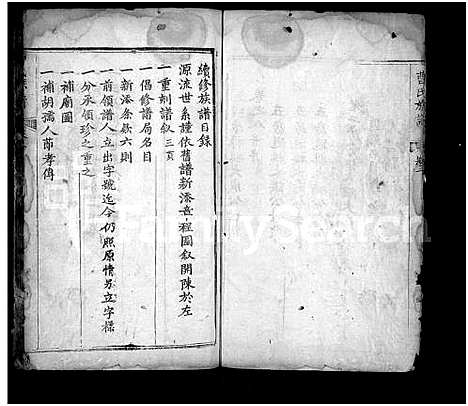 續修族譜目錄
源流世系謹依舊譜新添卷程圖叙開陳於左
一重刻譜叙三頁
一倡修譜局名目
一新添条欵六則
一前領譜人立出字號迄今仍照原情另立字樣
一分承領珍之重之
一補廟圖
一補胡孺人節孝傳
曹氏族譜
FamilySearch